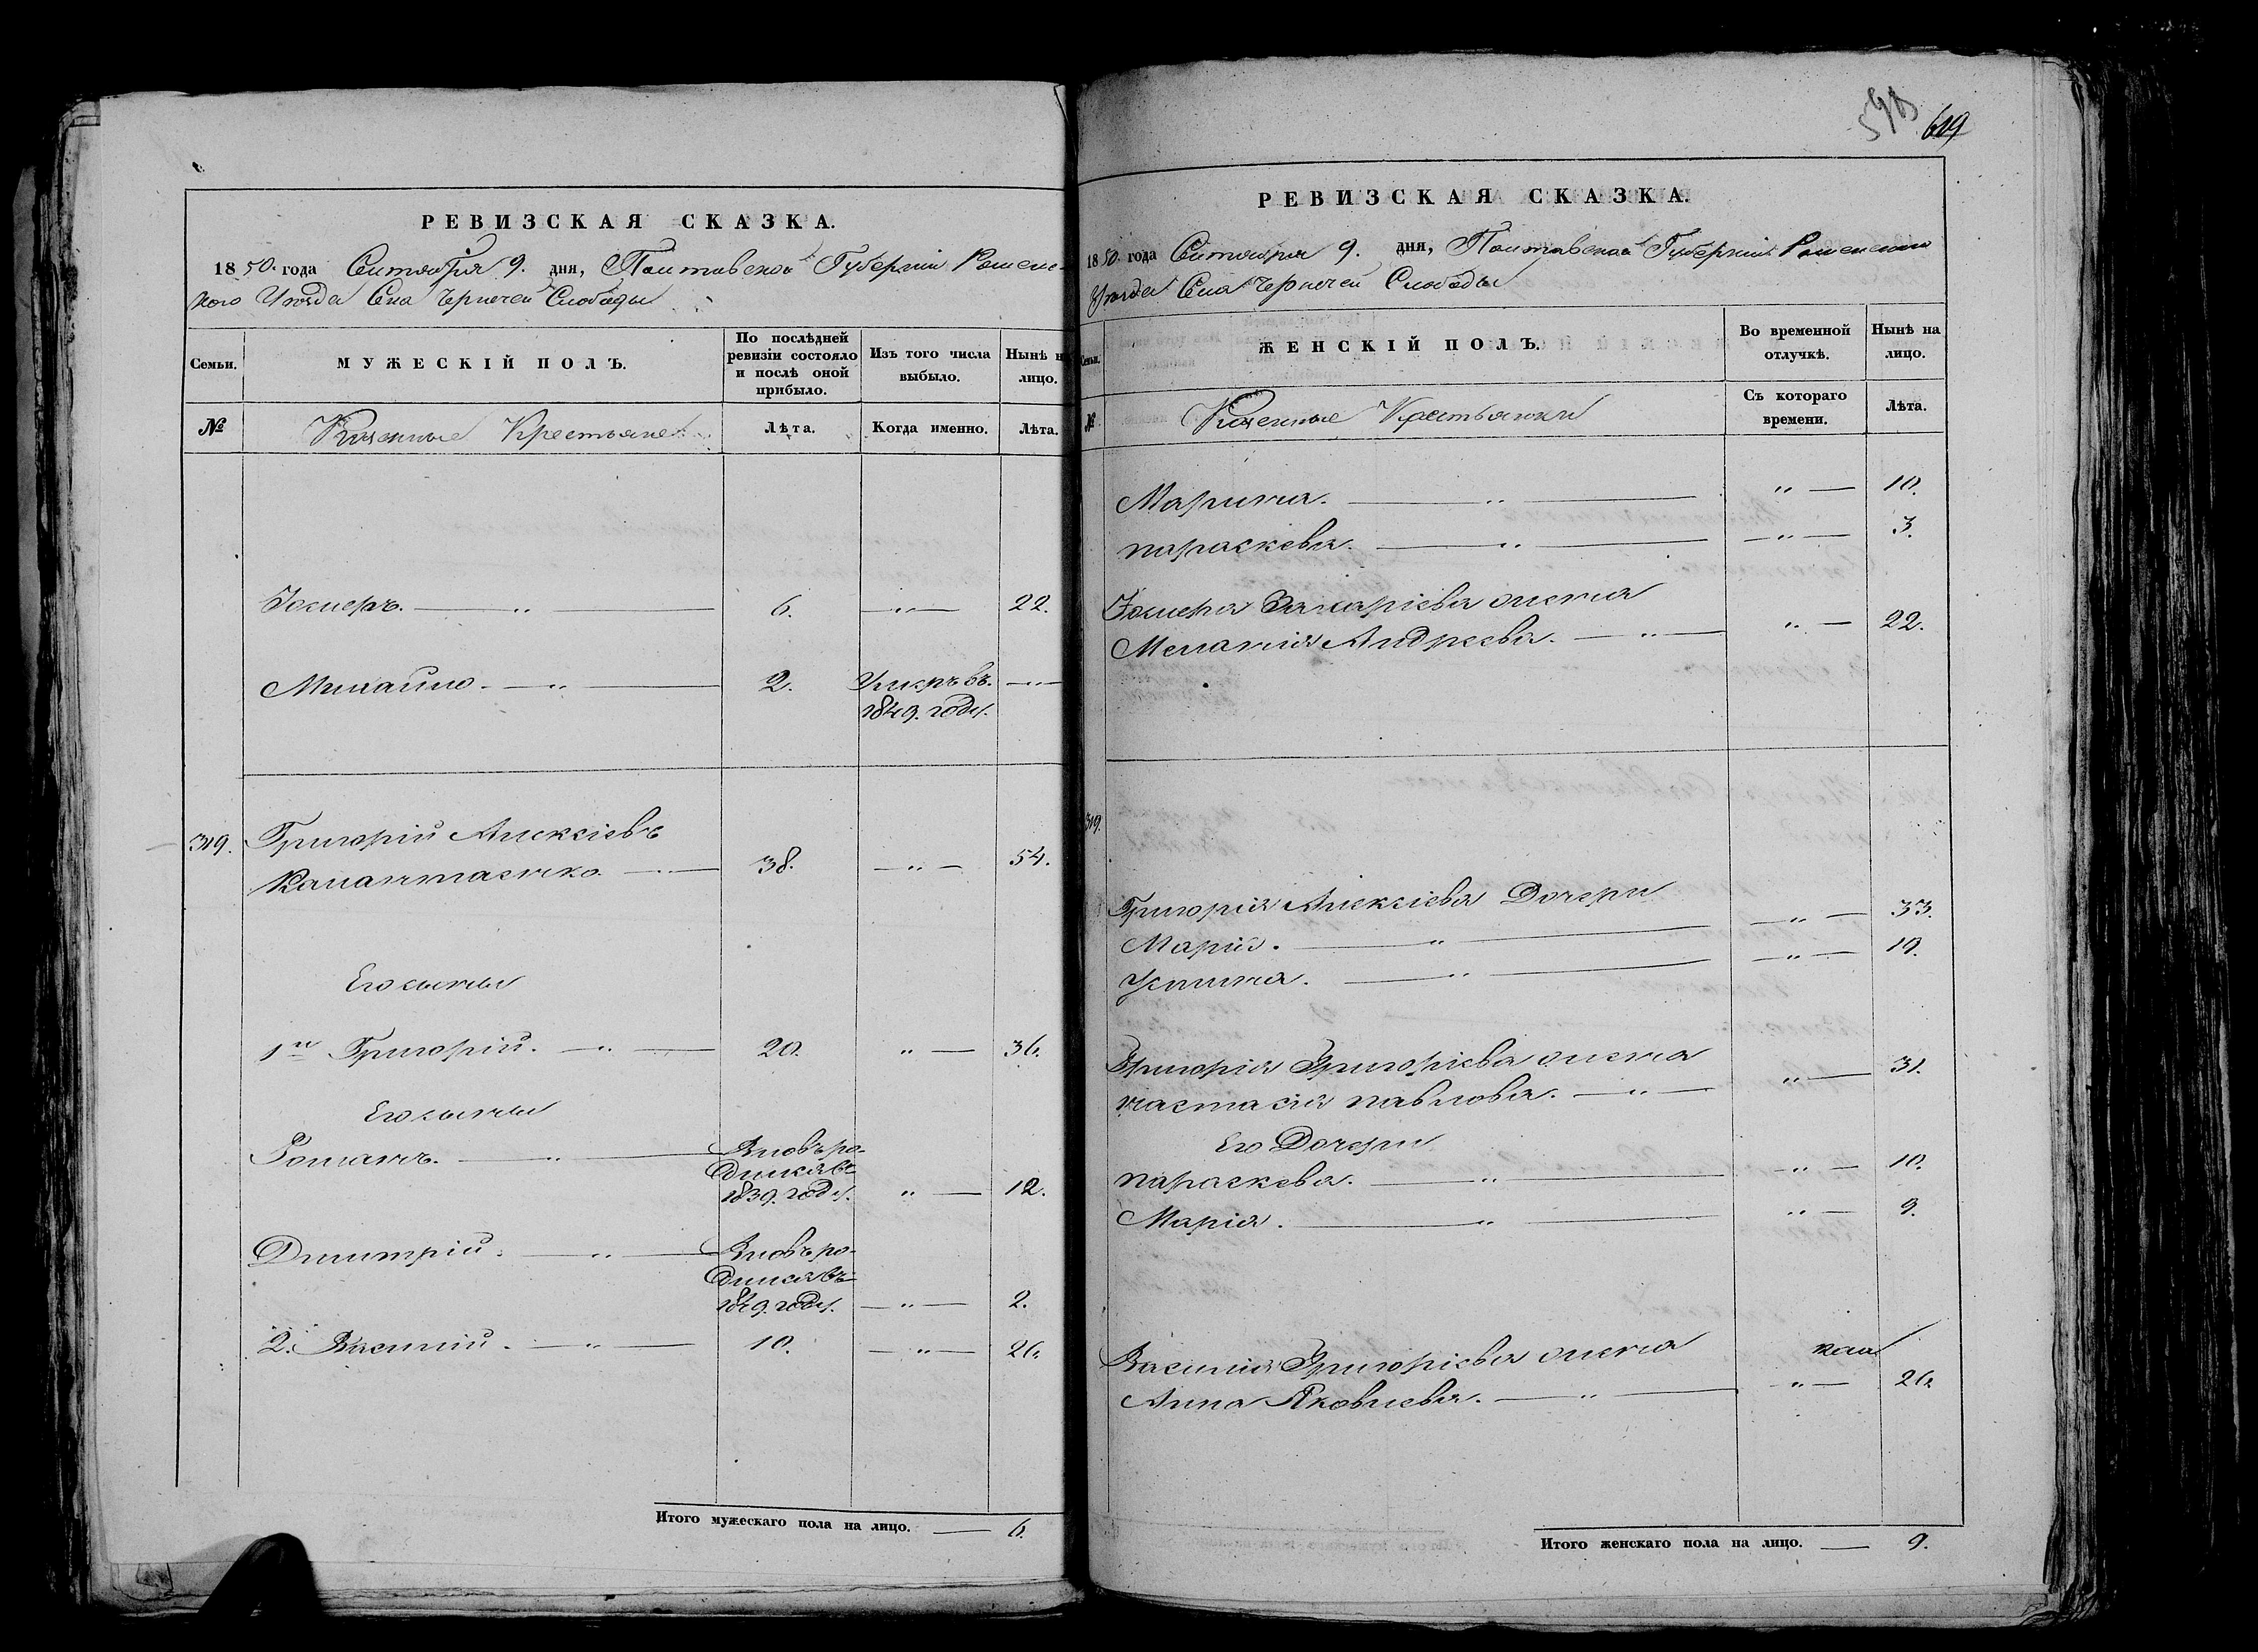 РЕВИЗСКАЯ СКАЗКА.
1850. года Сентября 9. дня, Полтавской Губерніи Роменс-
кого Уѣзда Села Чернечей Слободы
Семьи.
МУЖЕСКІЙ ПОЛЪ.
По послѣдней
ревизіи состояло
и послѣ оной
прибыло.
Изъ того числа
выбыло.
Нынѣ н
лицо.
№
Казенные Крестьяне
Лѣта.
Когда именно.
Лѣта.
6. 22.
Михайло. 2. Умеръ въ
1849. году.
319. Григорій Алексіевъ
38. 54.
Его сыны
1й Григорій. 20. 36.
Его сыны
Романъ. Вновь ро-
дился въ
1839. году. 12.
Димитрій. Вновь ро-
дился въ
1849. году. 2.
2. Василий. 10. 26.
Итого мужескаго пола на лицо. 6.
598 619
РЕВИЗСКАЯ СКАЗКА.
1850. года Сентября 9. дня, Полтавской Губерніи Роменского
Уѣзда Села Чернечей Слободы
Семьи.
ЖЕНСКІЙ ПОЛЪ.
Во временной
отлучкѣ.
Нынѣ на
лицо.
№
Казенные Крестьянки
Съ котораго
времени.
Лѣта.
Марина. 10.
параскева. 3.
Захаріева жена
Меланія Андреева. 22.
319.
Григорія Алексіева Дочери
Марія. 33.
Устина. 19.
Григорія Григоріева жена
настасія павлова. 31.
Его Дочери
параскева. 10.
Марія. 9.
Василия Григоріева жена
Анна Яковлева. 26.
Итого женскаго пола на лицо. 9.